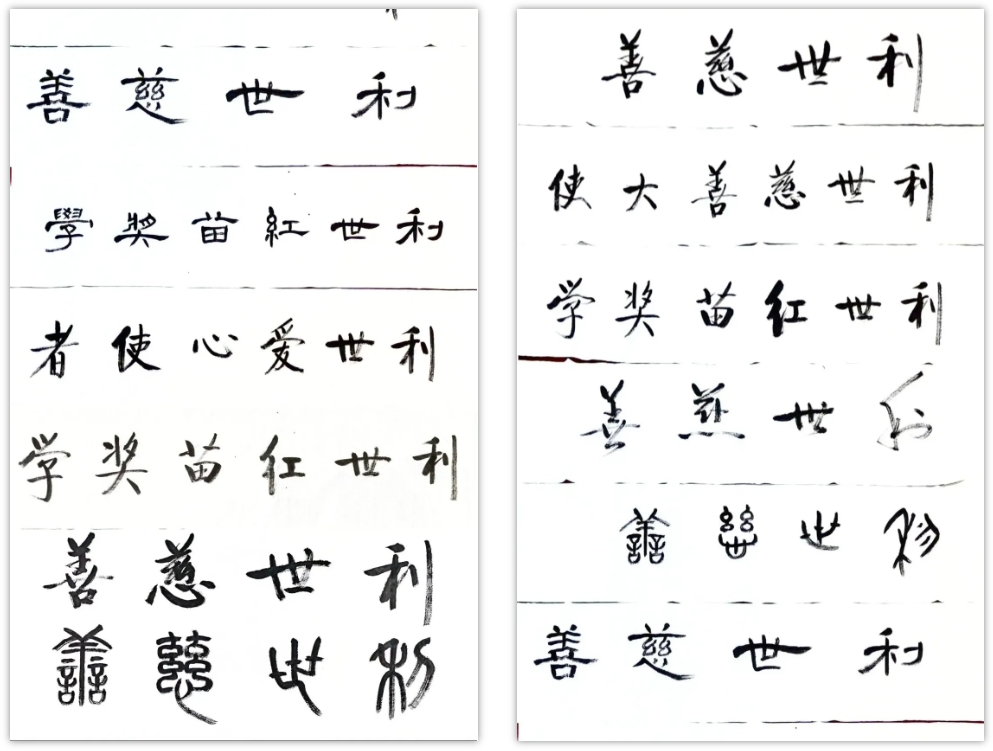 利世慈善
利世紅苗奬學
利世爱心使者
利世红苗奖学
利世慈善
利世慈善
利世慈善
利世慈善大使
利世红苗奖学
利世慈善
利世慈善
利世慈善